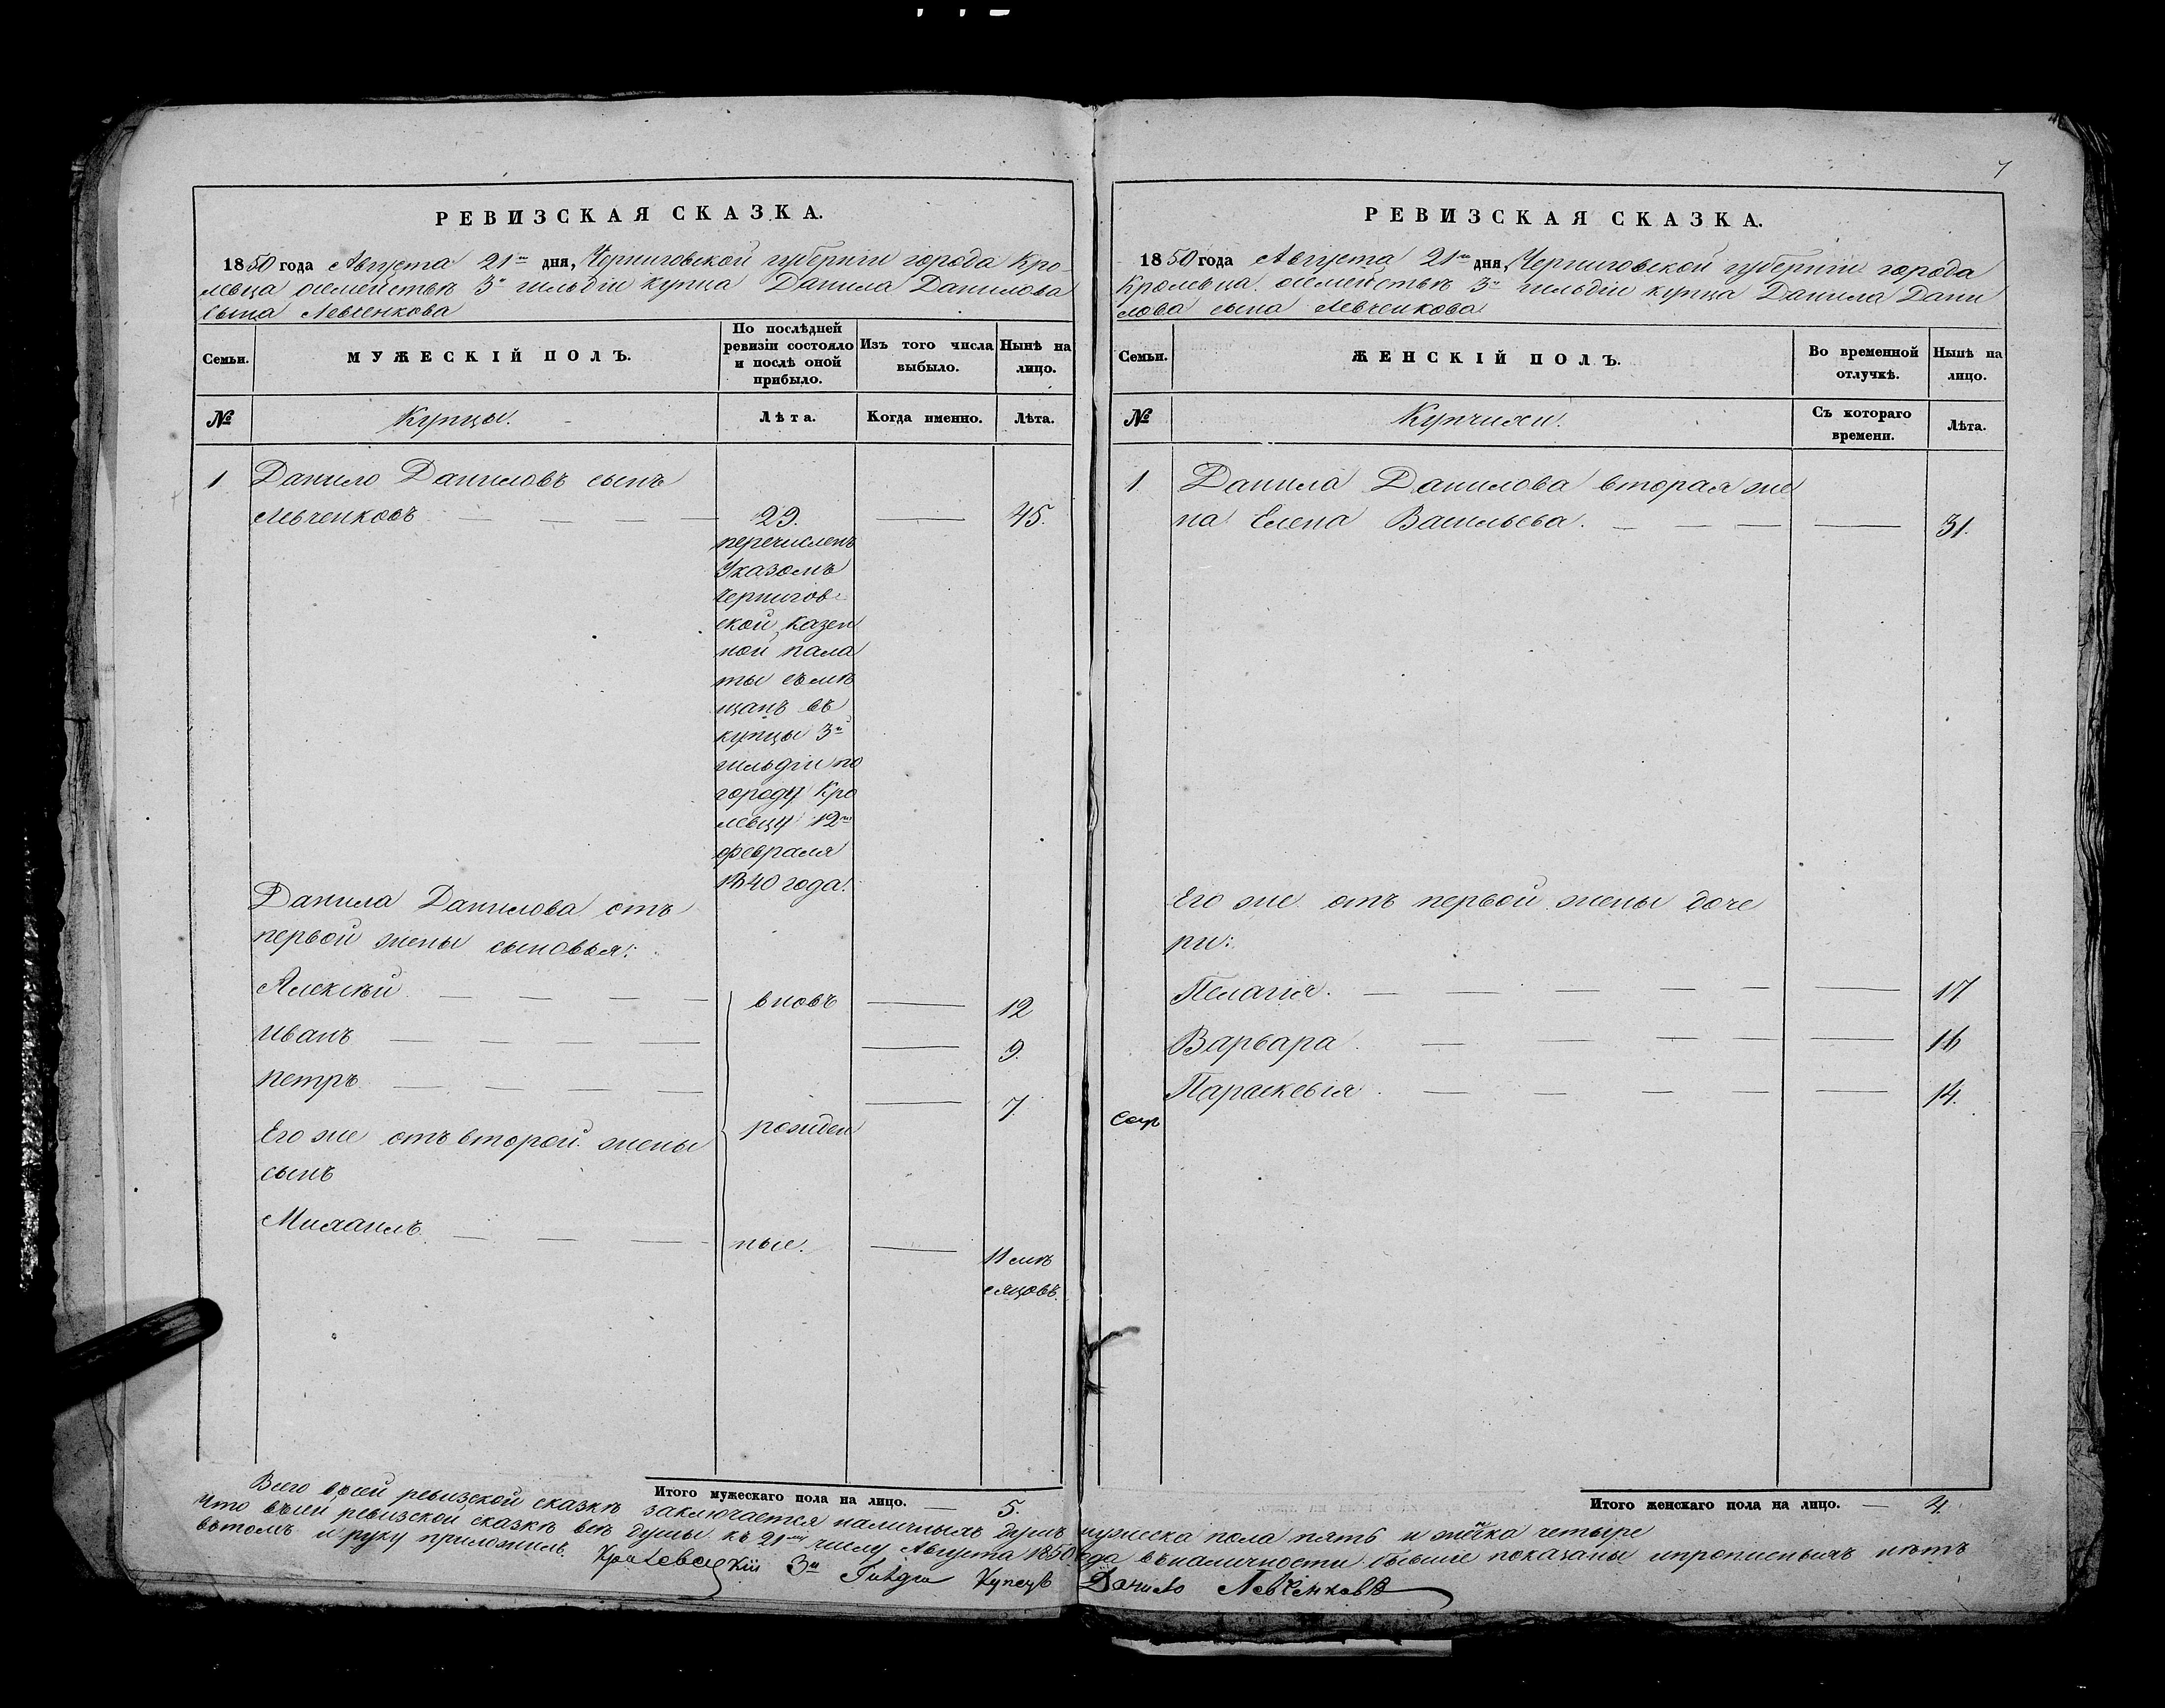 7
РЕВИЗСКАЯ СКАЗКА.
1850 года Августа 21го дня, Черниговской губернiи города Кро-
левца осемействѣ 3й гильдiи купца Данила Данилова
сына Левченкова
Семьи.
МУЖЕСКIЙ ПОЛЪ.
По послѣдней
ревизiи состояло
и послѣ оной
прибыло.
Изъ того числа
выбыло.
Нынѣ на
лицо.
№
Купцы.
Лѣта.
Когда именно.
Лѣта.
1
Данило Даниловъ сынъ
Левченковъ 29. 45.
перечисленъ
Указомъ
Чернигов-
ской Казен
ной пала
ты съмѣ
щанъ въ
купцы 3й
гильдiи по
городу Кро
левцу 12го
февраля
1840 года.
Данила Данилова отъ
первой жены сыновья:
Алексѣй вновь 12
Иванъ 9.
Петръ 7.
Его же отъ второй жены рожден
сынъ
Михаилъ ные. 11 мѣ
сяцовъ.
Итого мужескаго пола на лицо. 5.
РЕВИЗСКАЯ СКАЗКА.
1850 года Августа 21го дня, Черниговской губернiи города
Кролевца. осемействѣ 3й гильдiи купца Данила Дани
лова сына Левченкова
Семьи.
ЖЕНСКIЙ ПОЛЪ.
Во временной
отлучкѣ.
Нынѣ на
лицо.
№
Купчихи.
Съ котораго
времени.
Лѣта.
1.
Данила Данилова вторая же
на Елена Васильева. 31.
Его же отъ первой жены доче
ри:
Пелагiя. 17
Варвара. 16
Параскевiя. 14.
Итого женскаго пола на лицо. 4.
Всего въсей ревизской сказкѣ заключается наличныхъ душъ мужеска пола пять и женска четыре
Что въсей ревизской сказкѣ всѣ души къ 21му числу Августа 1850 года въналичности бывшiе показаны ипрописныхъ нѣтъ
вътомъ и руку приложилъ. Кролевецкiй 3й Гилдiи Купецъ Данило Левченковъ